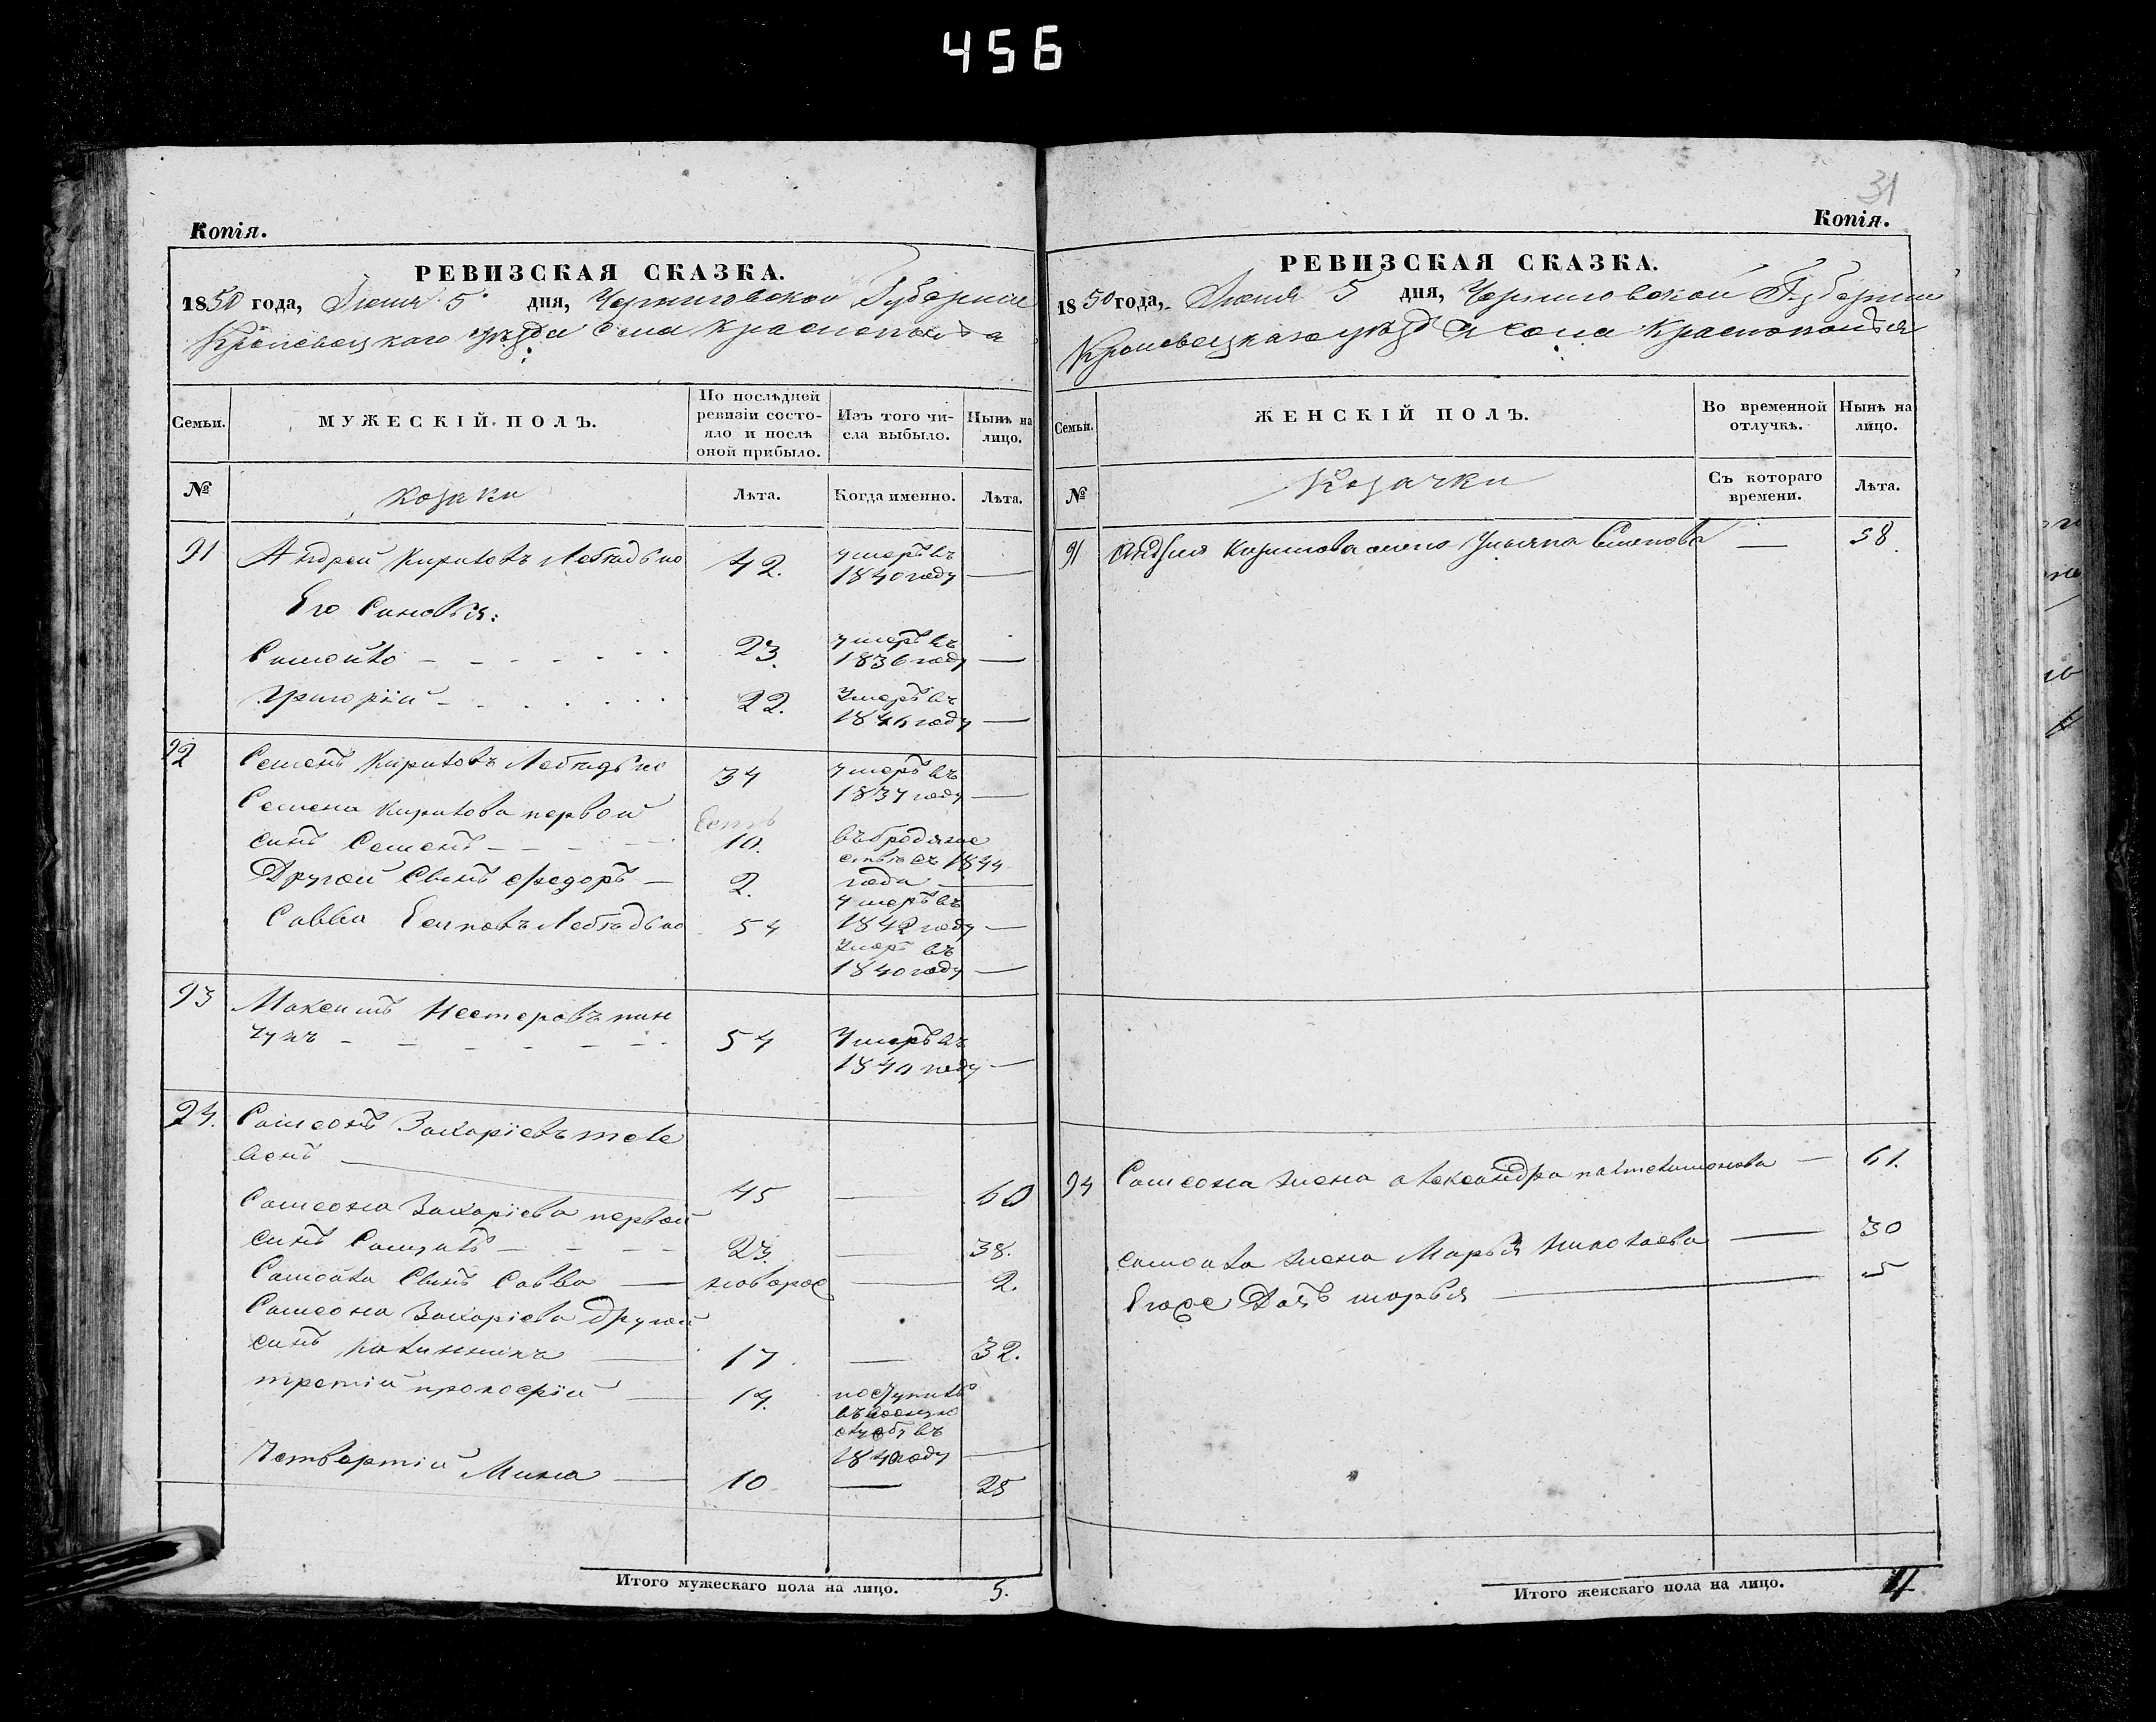 456
Копія.
РЕВИЗСКАЯ СКАЗКА.
1850 года, Июня 5 дня, Черниговской Губерніи
Кролевецкаго уѣзда Села Краснополья
Семьи. МУЖЕСКІЙ ПОЛЪ. По послѣдней ревизіи состояло и послѣ оной прибыло. Изъ того числа выбыло. Нынѣ на лицо.
№ козаки Лѣта. Когда именно. Лѣта.
91 Андрей Кириловъ 42. умеръ въ 1840 году —
Его Синовья:
Самойло 23. умеръ въ 1836 году —
Григорій 22. Умеръ въ году —
92 Семенъ Кириловъ 34 умеръ въ году —
Семена Кирилова первой
синъ Семенъ 10. въ бродяже ствѣ съ 1844 года —
Другой Синъ Федоръ — 2. умеръ въ 1842 году —
Савва 54 Умеръ въ 1840 году —
93 Максимъ Нестеровъ пин
чукъ 54 Умеръ въ 1840 году —
94. Самсонъ Захаріевъ
45 — 60
Самсона Захаріева первой
синъ Самуилъ 23. — 38.
Самойла Синъ Савва — новорож — 2.
Самсона Захаріева Другой
синъ Калинникъ — 17. — 32.
третій прокофій — 14. поступилъ въ военную службу въ 1840 году —
Четвертій Мина — 10 — 25
Итого мужескаго пола на лицо. 5.
31
Копія.
РЕВИЗСКАЯ СКАЗКА.
1850 года, Июня 5 дня, Черниговской Губерніи
Кролевецкаго уѣзда Села Краснополья
Семьи. ЖЕНСКІЙ ПОЛЪ. Во временной отлучкѣ. Нынѣ на лицо.
№ Козачки Съ котораго времени. Лѣта.
91 Андрея Кирилова жена Ульяна — 58.
94 Самсона жена александра — 61.
самойла жена Марья Николаева — 30
Егоже Дочь марья — 5
Итого женскаго пола на лицо. 4